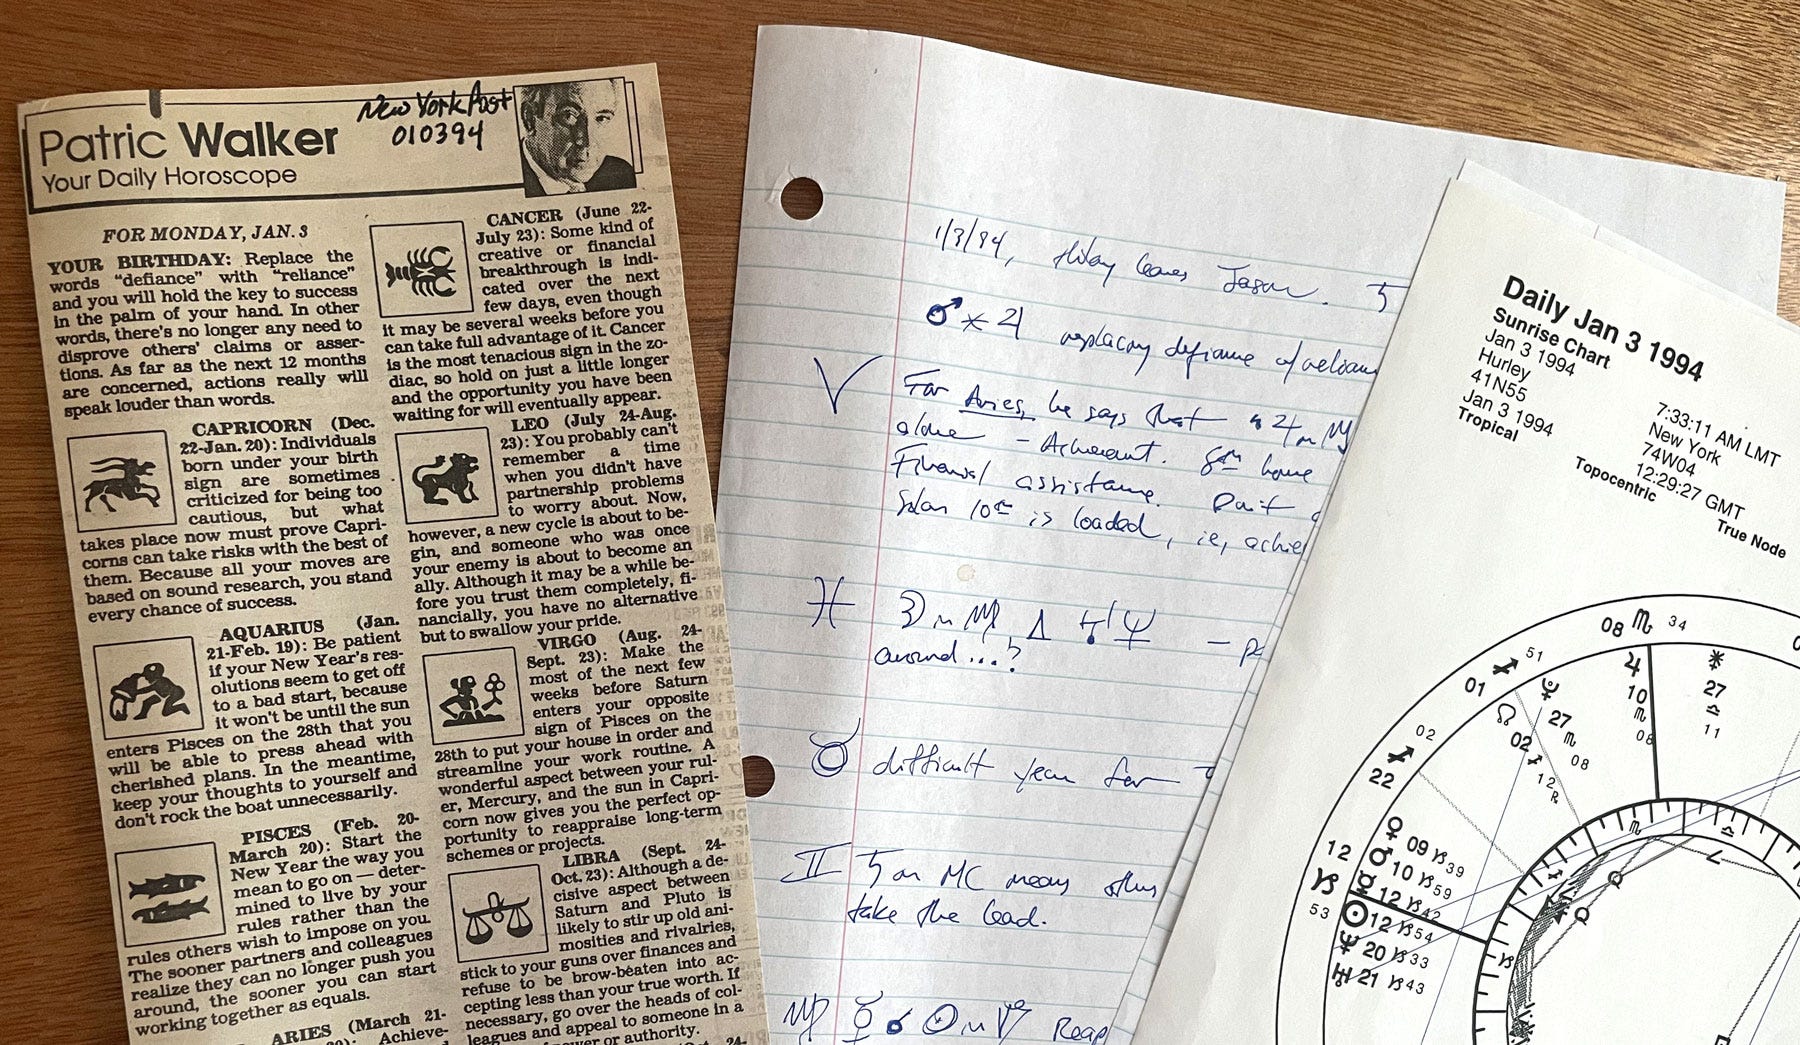 New York Post
010394
Patric Walker
Your Daily Horoscope
FOR MONDAY, JAN. 3
YOUR BIRTHDAY: Replace the
words “defiance” with “reliance”
and you will hold the key to success
in the palm of your hand. In other
words, there's no longer any need to
disprove others' claims or asser-
tions. As far as the next 12 months
are concerned, actions really will
speak louder than words.
CAPRICORN (Dec.
22-Jan. 20): Individuals
born under your birth
sign are sometimes
criticized for being too
cautious, but what
takes place now must prove Capri-
corns can take risks with the best of
them. Because all your moves are
based on sound research, you stand
every chance of success.
AQUARIUS (Jan.
21-Feb. 19): Be patient
if your New Year's res-
olutions seem to get off
to a bad start, because
it won't be until the sun
enters Pisces on the 28th that you
will be able to press ahead with
cherished plans. In the meantime,
keep your thoughts to yourself and
don't rock the boat unnecessarily.
PISCES (Feb. 20-
March 20): Start the
New Year the way you
mean to go on — deter-
mined to live by your
rules rather than the
rules others wish to impose on you.
The sooner partners and colleagues
realize they can no longer push you
around, the sooner you can start
working together as equals.
ARIES (March 21-
20): Achieve-
CANCER (June 22-
July 23): Some kind of
creative or financial
breakthrough is indi-
cated over the next
few days, even though
it may be several weeks before you
can take full advantage of it. Cancer
is the most tenacious sign in the zo-
diac, so hold on just a little longer
and the opportunity you have been
waiting for will eventually appear.
LEO (July 24-Aug.
23): You probably can't
remember a time
when you didn't have
partnership problems
to worry about. Now,
however, a new cycle is about to be-
gin, and someone who was once
your enemy is about to become an
ally. Although it may be a while be-
fore you trust them completely, fi-
nancially, you have no alternative
but to swallow your pride.
VIRGO (Aug. 24-
Sept. 23): Make the
most of the next few
weeks before Saturn
enters your opposite
sign of Pisces on the
28th to put your house in order and
streamline your work routine. A
wonderful aspect between your rul-
er, Mercury, and the sun in Capri-
corn now gives you the perfect op-
portunity to reappraise long-term
schemes or projects.
LIBRA (Sept. 24-
Oct. 23): Although a de-
cisive aspect between
Saturn and Pluto is
likely to stir up old ani-
mosities and rivalries,
stick to your guns over finances and
refuse to be brow-beaten into ac-
cepting less than your true worth. If
necessary, go over the heads of col-
leagues and appeal to someone in a
or authority.
1/3/94, leaves Jason. ♄
♂ ⚹ ♃ replacing defiance w/
For Aries, he says that ♃ in ♏
alone – Achievement. 8th house
Financial assistance.
Solar 10th is loaded, ie,
♓ ☽ in ♍ △ ♅ ♆ –
around...?
♉ difficult year for
♊ ♄ on MC means others
take the lead.
♍ ☿ ☌ ☉ in ♑ Reap
Daily Jan 3 1994
Sunrise Chart
Jan 3 1994
Hurley
41N55
Jan 3 1994
Tropical
7:33:11 AM LMT
New York
74W04
12:29:27 GMT
Topocentric
True Node
08 ♏ 34
01 ♐ 51
02 ♐ 22
12 ♑ 53
♃ 10 ♏ 08
⚹ 27 ♎ 11
♇ 27 ♏ 08
☊ 02 ♐ 12 ℞
♀ 09 ♑ 39
♂ 10 ♑ 59
☿ 12 ♑ 42
☉ 12 ♑ 54
♆ 20 ♑ 33
♅ 21 ♑ 43